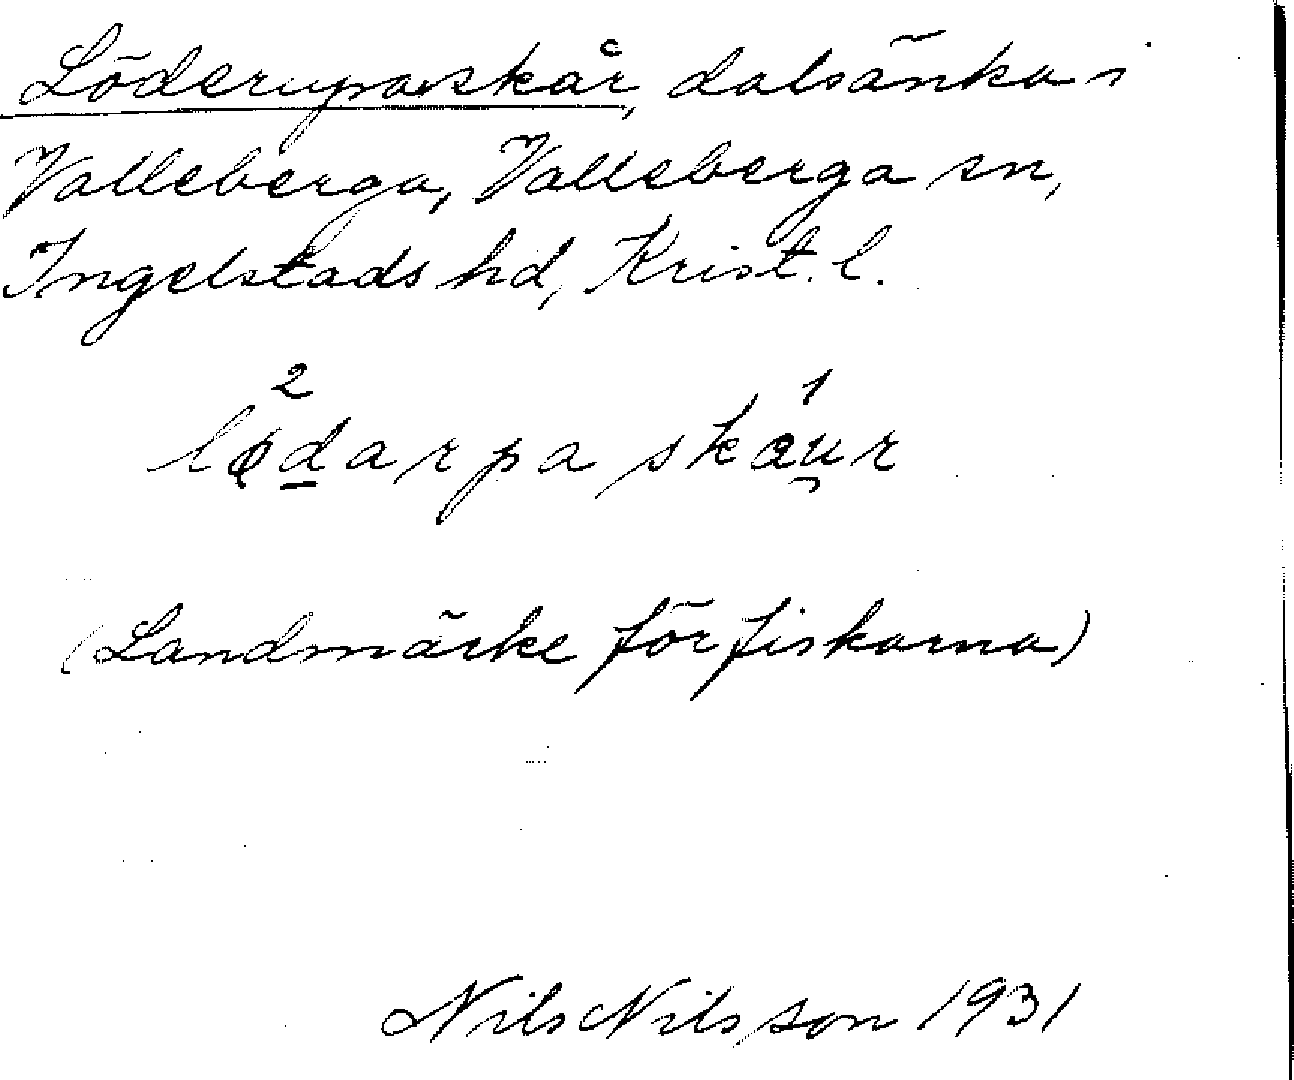 Löderupaskår, dalsänka i
Valleberga, Valleberga sn,
Ingelstads hd, Krist. l.
2 1
lødarpa skau̯r
(Landmärke för fiskarna)
Nils Nilsson 1931